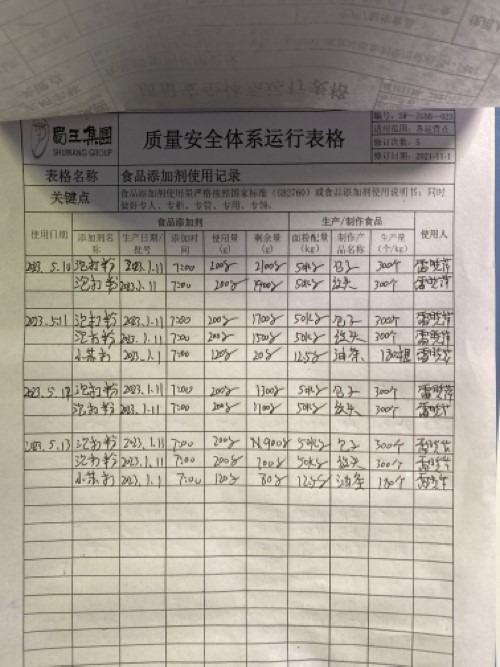 蜀王集團
SHUWANG GROUP
质量安全体系运行表格
适用范围：各运营点
修订次数：5
修订日期：2021-11-1
表格名称 食品添加剂使用记录
关键点 食品添加剂使用量严格按照国家标准（GB2760）或食品添加剂使用说明书；同时
做好专人、专柜、专管、专用、专领。
食品添加剂 生产/制作食品
使用日期 添加剂名称 生产日期/批号 添加时间 使用量（g） 剩余量（g） 面粉配量（kg） 制作产品名称 生产量（个/kg） 使用人
2023.5.10 泡打粉 2023.1.11 7:00 200g 2100g 50kg 包子 300个
泡打粉 2023.1.11 7:00 200g 1900g 50kg 300个
2023.5.11 泡打粉 2023.1.11 7:00 200g 1700g 50kg 包子 300个
泡打粉 2023.1.11 7:00 200g 1500g 50kg 300个
小苏打 2023.1.1 7:00 120g 20g 12.5g 油条 180根
泡打粉 2023.1.11 7:00 200g 1300g 50kg 包子 300个
泡打粉 2023.1.11 7:00 200g 1100g 50kg 300个
2023.5.13 泡打粉 2023.1.11 7:00 200g 900g 50kg 包子 300个
泡打粉 2023.1.11 7:00 200g 700g 50kg 300个
小苏打 2023.1.1 7:00 120g 80g 油条 180个